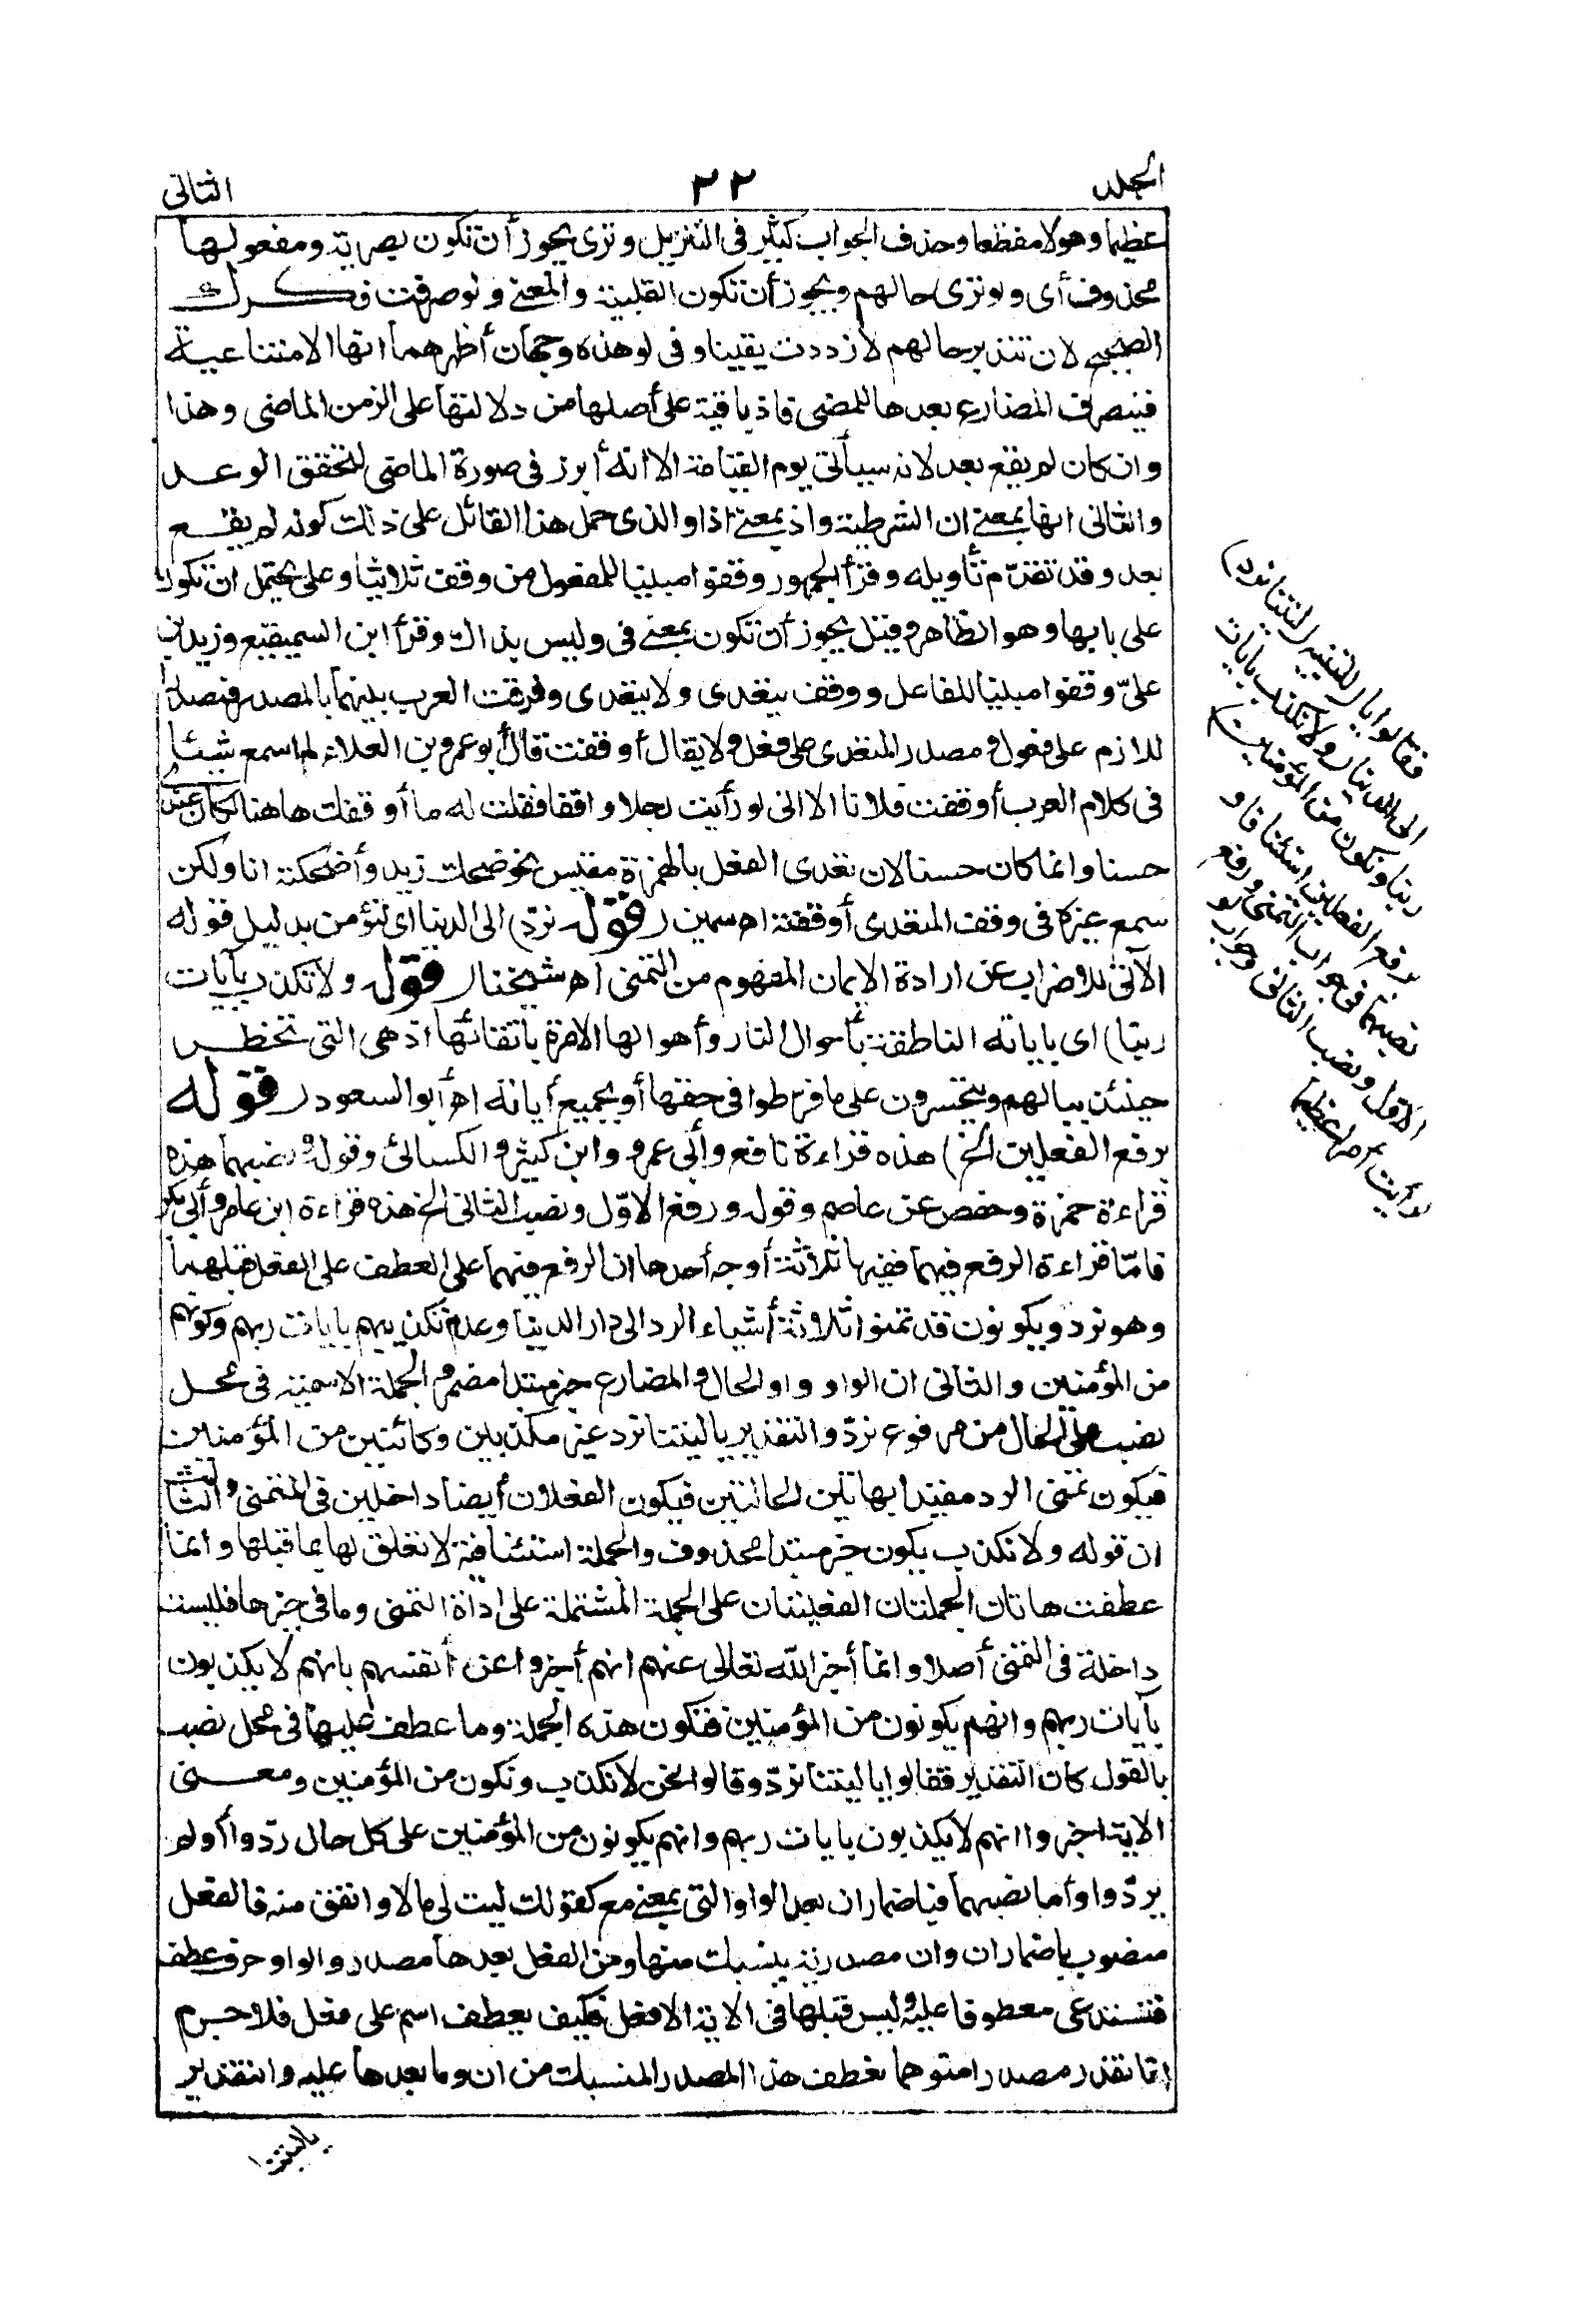 الجلد ٢٢ الثانى
عظيما وهولا مفظعا وحذف الجواب كثير فى التنزيل وترى يجوز أن تكون بصرية ومفعولها
محذوف أى ولو ترى حالهم ويجوز أن تكون القلبية والمعنى ولو صرفت فكرك
الصحيح لان تتدبر حالهم لازددت يقينا وفى لو هذه وجهان أظهرهما انها الامتناعية
فينصرف المضارع بعدها للمضى فاذ باقية على أصلها من دلالتها على الزمن الماضى وهذا
وان كان لم يقع بعد لانه سيأتى يوم القيامة الا انه أبرز فى صورة الماضى لتحقق الوعد
والثانى انها بمعنى ان الشرطية واذ بمعنى اذا والذى حمل هذا القائل على ذلك كونه لم يقع
بعد وقد تقدّم تأويله وقرأ الجمهور وقفوا مبنيا للمفعول من وقف ثلاثيا وعلى يحتمل ان تكون
على بابها وهو الظاهر وقيل يجوز أن تكون بمعنى فى وليس بذاك وقرأ ابن السميقيع وزيد بن
علىّ وقفوا مبنيا للفاعل ووقف يتعدى ولا يتعدى وفرقت العرب بينهما بالمصدر فمصدر
للازم على فعول ومصدر المتعدى على فعل ولا يقال أوقفت قال أبو عمرو بن العلاء لم اسمع شيئا
فى كلام العرب أوقفت فلانا الا انى لو رأيت رجلا واقفا فقلت له ما أوقفك هاهنا لكان عندى
حسنا وانما كان حسنا لان تعدى الفعل بالهمزة مقيس نحو ضحك زيد وأضحكته انا ولكن
سمع غيره فى وقف المتعدى أوقفته اهـ سمين (قوله نردّ) الى الدنيا اى لنؤمن بدليل قوله
الآتى للاضراب عن ارادة الايمان المفهوم من التمنى اهـ شيخنا (قوله ولا نكذب بآيات
ربنا) اى باياته الناطقة بأحوال النار وأهوالها الامرة باتقائها اذ هى التى تخطر
حينئذ ببالهم ويتحسرون على ما فرطوا فى حقها أو بجميع أياته اهـ أبو السعود (قوله
برفع الفعلين الخ) هذه قراءة نافع وأبى عمرو وابن كثير والكسائى وقوله ونصبهما هذه
قراءة حمزة وحفص عن عاصم وقوله ورفع الاوّل ونصب الثانى الخ هذه قراءة ابن عامر وأبى بكر
فامّا قراءة الرفع فيهما ففيها ثلاثة أوجه أحدها ان الرفع فيهما على العطف على الفعل قبلهما
وهو نرد ويكونون قد تمنوا ثلاثة أشياء الرد الى دار الدنيا وعدم تكذيبهم بايات ربهم وكونهم
من المؤمنين والثانى ان الواو واو الحال والمضارع خبر مبتدا مضمر والجملة الاسمية فى محل
نصب على الحال من مرفوع نردّ والتقدير يا ليتنا نرد غير مكذبين وكائنين من المؤمنين
فيكون تمنى الرد مقيدا بهاتين الحالتين فيكون الفعلان أيضا داخلين فى المتمنى والثالث
ان قوله ولا نكذب يكون خبر مبتدا محذوف والجملة استئنافية لا تعلق لها بما قبلها وانما
عطفت هاتان الجملتان الفعليتان على الجملة المشتملة على اداة التمنى وما فى حيزها فليست
داخلة فى التمنى أصلا وانما أخبر الله تعالى عنهم انهم أخبروا عن أنفسهم بانهم لا يكذبون
بآيات ربهم وانهم يكونون من المؤمنين فتكون هذه الجملة وما عطف عليها فى محل نصب
بالقول كان التقدير فقالوا يا ليتنا نردّ وقالوا نحن لا نكذب ونكون من المؤمنين ومعنى
الاية اخبروا انهم لا يكذبون بايات ربهم وانهم يكونون من المؤمنين على كل حال ردّوا أو لم
يردّوا وأما نصبهما فباضمار ان بعد الواو التى بمعنى مع كقولك ليت لى مالا وانفق منه فالفعل
منصوب باضمار ان وان مصدرية ينسبك منها ومن الفعل بعدها مصدر والواو حرف عطف
فتستدعى معطوفا عليه وليس قبلها فى الاية الا فعل فكيف يعطف اسم على فعل فلا جرم
انا نقدر مصدرا متوهما يعطف هذا المصدر المنسبك من ان وما بعدها عليه والتقدير
يا ليتنا
فقالوا يا) للتنبيه (ليتنا نرد)
الى الدنيا (ولا نكذب بايات
ربنا ونكون من المؤمنين)
برفع الفعلين استئنافا و
نصبهما فى جواب التمنى ورفع
الاوّل ونصب الثانى وجواب لو
لرأيت أمرا عظيما